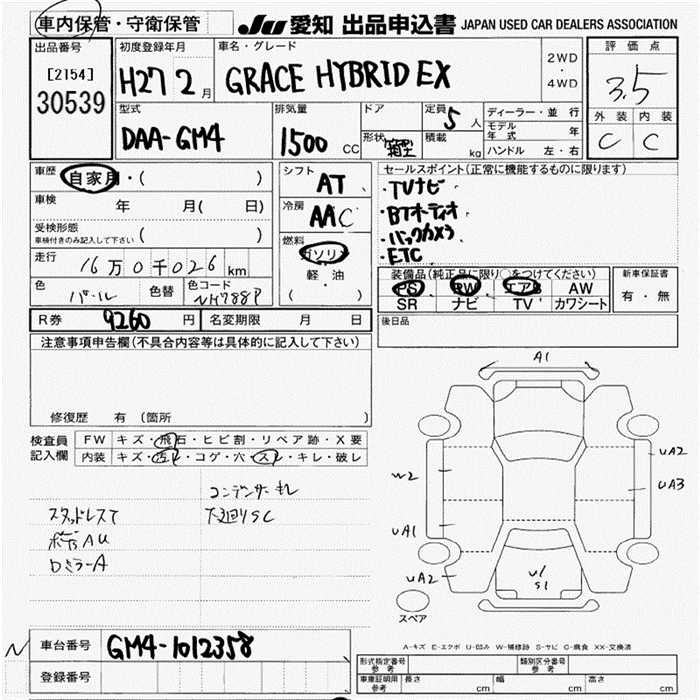 車内保管・守衛保管
JU 愛知 出品申込書 JAPAN USED CAR DEALERS ASSOCIATION
出品番号
[2154]
30539
初度登録年月
H27 2 月
車名・グレード
GRACE HYBRID EX
2WD
・
4WD
評価点
3.5
外装 内装
C C
型式
DAA-GM4
排気量
1500 CC
ドア
形状 箱型
定員 5 人
積載 kg
ディーラー・並行
モデル年式 年
ハンドル 左・右
車歴 自家用・( )
車検 年 月( 日)
受検形態
車検付きのみ記入して下さい ( )
走行 16万0千026 km
色 パール 色替 色コード NH788P
シフト AT
冷房 AAC
燃料
ガソリン
軽・油
( )
セールスポイント(正常に機能するものに限ります)
・TVナビ
・BTオーディオ
・バックカメラ
・ETC
装備品(純正品に限り○をつけてください)
PS PW エアB AW
SR ナビ TV カワシート
新車保証書
有・無
R券 9260 円 名変期限 月 日
後日品
注意事項申告欄(不具合内容等は具体的に記入して下さい)
修復歴 有(箇所 )
検査員記入欄
FW キズ・飛石・ヒビ割・リペア跡・X要
内装 キズ・汚レ・コゲ・穴・スレ・キレ・破レ
コンデンサーキレ
スタッドレスT 下廻りSC
ボディAU
ロミラーA
A1
W2
UA1
UA2
UA2
UA3
U1
S1
スペア
A-キズ E-エクボ U-凹み W-補修跡 S-サビ C-腐食 XX-交換済
N 車台番号 GM4-1012358
登録番号
形式指定番号 参考
類別区分番号 参考
車庫証明用 参考 長さ cm 幅 cm 高さ cm